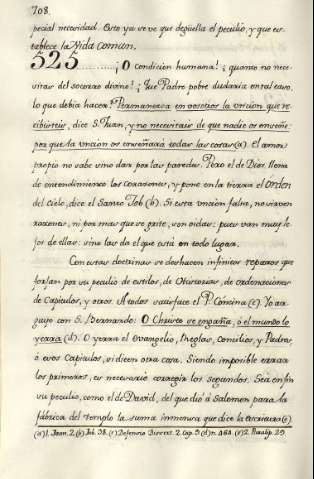 708.
pecial necesidad. Esto ya se ve que degüella el peculio, y que es-
tablece la Vida comun.
525.......¡O condicion humana!¡ quanto no nece-
sitas del socorro divino!¿ Que Padre pobre dudaría en tal caso,
lo que debia hacer? Permanezca en vosotros la uncion que re-
cibisteis, dice S. Juan, y no necesitais de que nadie os enseñe:
por que la uncion os enseñará todas las cosas (a). El amor
propio no sabe sino dar por las paredes. Pero el de Dios llena
de entendimiento los corazones, y pone en la tierra el Orden
del Cielo, dice el Santo Job (b). Si esta uncion falta, no sirven
razones, ni por mas que se grite, son oidas: pues van muy le-
jos de ellas: sino las da el que está en todo lugar.
Con estas doctrinas se deshacen infinitos reparos que
forjan por su peculio de estilos, de Observancias, de ordenaciones
de Capitulos, y otros. A todos satisface el P. Cóncina (c). Yo ar-
guyo con S. Bernardo: O Christo se engaña, ó el mundo lo
yerra (d). O yerra el Evangelio, Reglas, Concilios, y Padres,
ó esos Capitulos, si dicen otra cosa. Siendo imposible errar
los primeros, es necesario corregir los segundos. Sea en fin
su peculio, como el de David, del que dió á Salomon para la
fábrica del Templo la suma inmensa que dice la escritura (e)
(a) 1. Joan. 2. (b) Job. 38. (c) Defensio Discept. 2. Cap. 9. (d) n. 468. (e) 2. Paralip. 29.